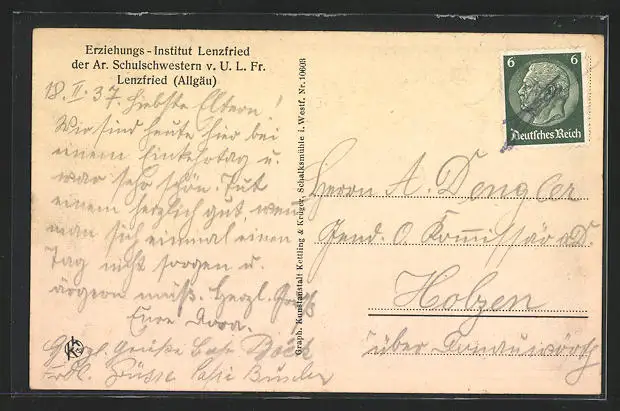 Erziehungs-Institut Lenzfried
der Ar. Schulschwestern v. U. L. Fr.
Lenzfried (Allgäu)
18. II. 37. Liebste Eltern!
Wir sind heute hier bei
einem Einkehrtag u.
war sehr schön. Tut
einem herzlich gut, wenn
man sich einmal einen
Tag nicht sorgen u.
ärgern muß. Herzl. Gruß
Eure Dora.
Herzl. Grüße
Frdl. Grüsse
Graph. Kunstanstalt Kettling & Krüger, Schalksmühle i. Westf. Nr. 10603
6 6
Deutsches Reich
Herrn A. Dengler
Gend. O. Kommissär a.D.
Holzen
über Donauwörth